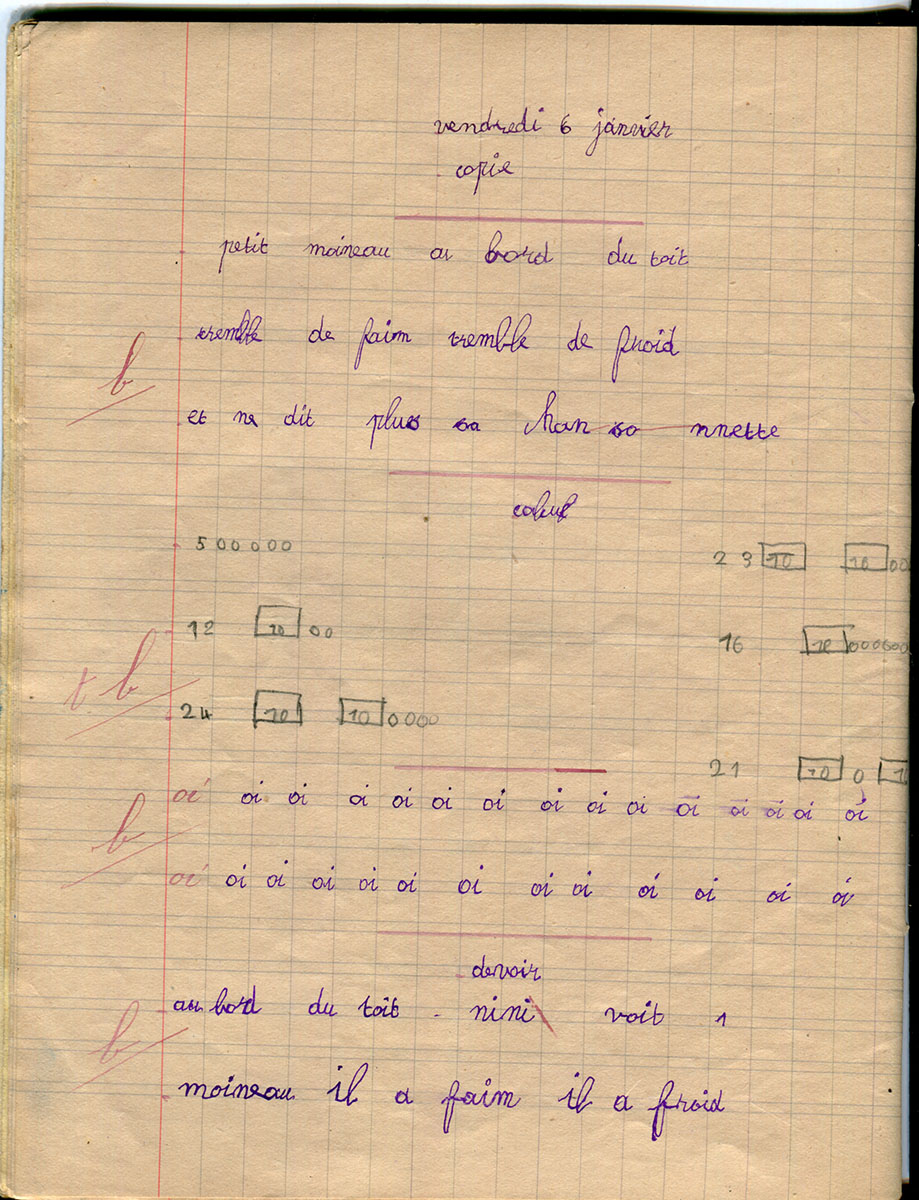 vendredi 6 janvier
copie
petit moineau au bord du toit
tremble de faim tremble de froid
b
et ne dit plus sa han so nnette
calcul
5 00000
2 3 10 10 00
12 10 00
16 10 000000
t b
24 10 10 0000
21 10 0 1
oi oi oi oi oi oi oi oi oi oi oi oi oi oi oi
b
oi oi oi oi oi oi oi oi oi oi oi oi oi
devoir
au bord du toit . nini voit 1
b
moineau il a faim il a froid